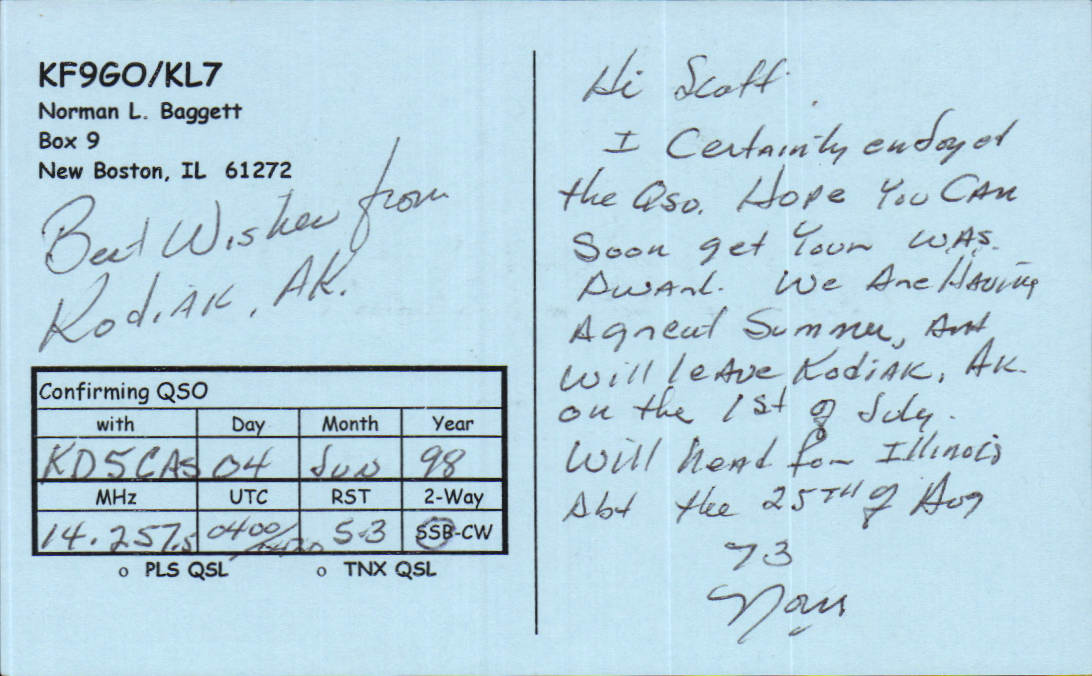 KF9GO/KL7
Norman L. Baggett
Box 9
New Boston, IL 61272
Best Wishes from
Kodiak, AK.
Confirming QSO
with Day Month Year
KD5CAS 04 Jun 98
MHz UTC RST 2-Way
14.257.5 0400/ 5-3 SSB-CW
o PLS QSL o TNX QSL
Hi Scott.
I Certainly enjoyed
the QSO. Hope You CAN
Soon get Your WAS.
Award. We Are Having
A great Summer, And
will leAve KodiAK, AK.
on the 1st of July.
Will head for Illinois
Abt the 25TH of Aug
73
Norm